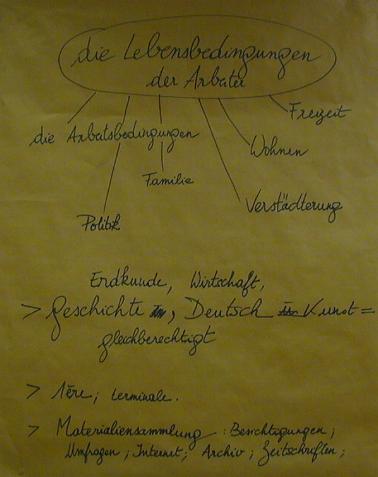 die Lebensbedingungen
der Arbeiter
Freizeit
die Arbeitsbedingungen
Wohnen
Familie
Verstädterung
Politik
Erdkunde, Wirtschaft,
> Geschichte, Deutsch Kunst =
gleichberechtigt
> 1ère; terminale.
> Materialiensammlung: Besichtigungen;
Umfragen; Internet; Archiv; Zeitschriften;